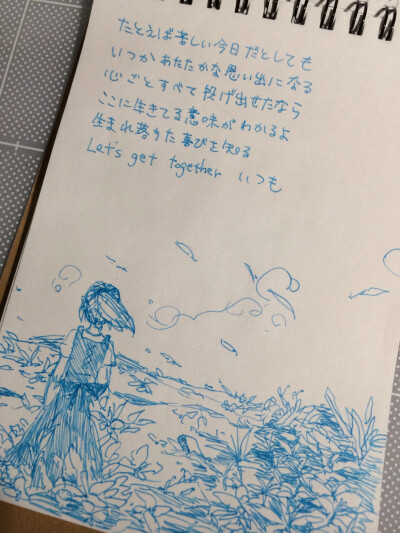 たとえば苦しい今日だとしても
いつかあたたかな思い出になる
心ごとすべて投げ出せたなら
ここに生きてる意味がわかるよ
生まれ落ちた喜びを知る
Let's get together いつも